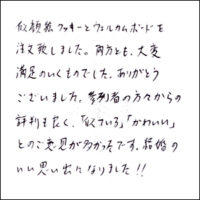 似顔絵クッキーとウェルカムボードを
注文致しました。両方とも、大変
満足のいくものでした。ありがとう
ございました。参列者の方々からの
評判も良く、「似ている」「かわいい」
とのご意見が多かったです。結婚の
いい思い出になりました!!